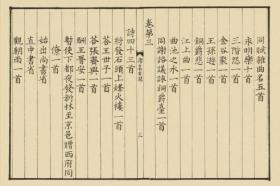 同賦雜曲名五首
永明樂十首
玉階怨一首
金谷聚一首
王孫遊一首
銅爵悲一首
江上曲一首
曲池之水一首
同謝諮議詠銅爵臺一首
卷第三
詩四十三首
將發石頭上烽火樓一首
答王世子一首
答張齊興一首
酬王晉安一首
暫使下都夜發新林至京邑贈西府同
僚一首
始出尚書省一首
直中書省一首
觀朝雨一首